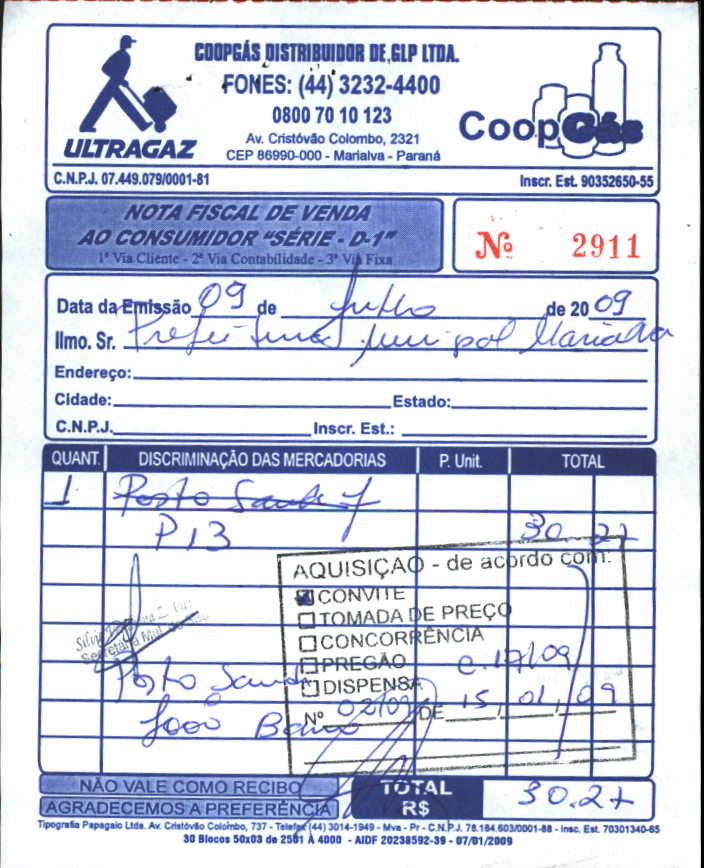 COOPGÁS DISTRIBUIDOR DE GLP LTDA.
FONES: (44) 3232-4400
0800 70 10 123
Av. Cristóvão Colombo, 2321
CEP 86990-000 - Marialva - Paraná
ULTRAGAZ
CoopGás
C.N.P.J. 07.449.079/0001-81 Inscr. Est. 90352650-55
NOTA FISCAL DE VENDA
AO CONSUMIDOR "SÉRIE - D-1"
1ª Via Cliente - 2ª Via Contabilidade - 3ª Via Fixa
Nº 2911
Data da Emissão 09 de Julho de 2009
Ilmo. Sr. Prefeitura Municipal Marialva
Endereço:
Cidade: Estado:
C.N.P.J. Inscr. Est.:
QUANT. DISCRIMINAÇÃO DAS MERCADORIAS P. Unit. TOTAL
1 Posto
P13 30.27
AQUISIÇÃO - de acordo com:
CONVITE
TOMADA DE PREÇO
CONCORRÊNCIA
PREGÃO C.17/09
DISPENSA
Nº 02/09 DE 15, 01, 09
Secretária
Posto
João
NÃO VALE COMO RECIBO
AGRADECEMOS A PREFERÊNCIA
TOTAL R$ 30.27
Tipografia Papagaio Ltda. Av. Cristóvão Colombo, 737 - Telefax (44) 3014-1949 - Mva - Pr - C.N.P.J. 78.184.603/0001-88 - Insc. Est. 70301340-65
30 Blocos 50x03 de 2501 À 4000 - AIDF 20238592-39 - 07/01/2009